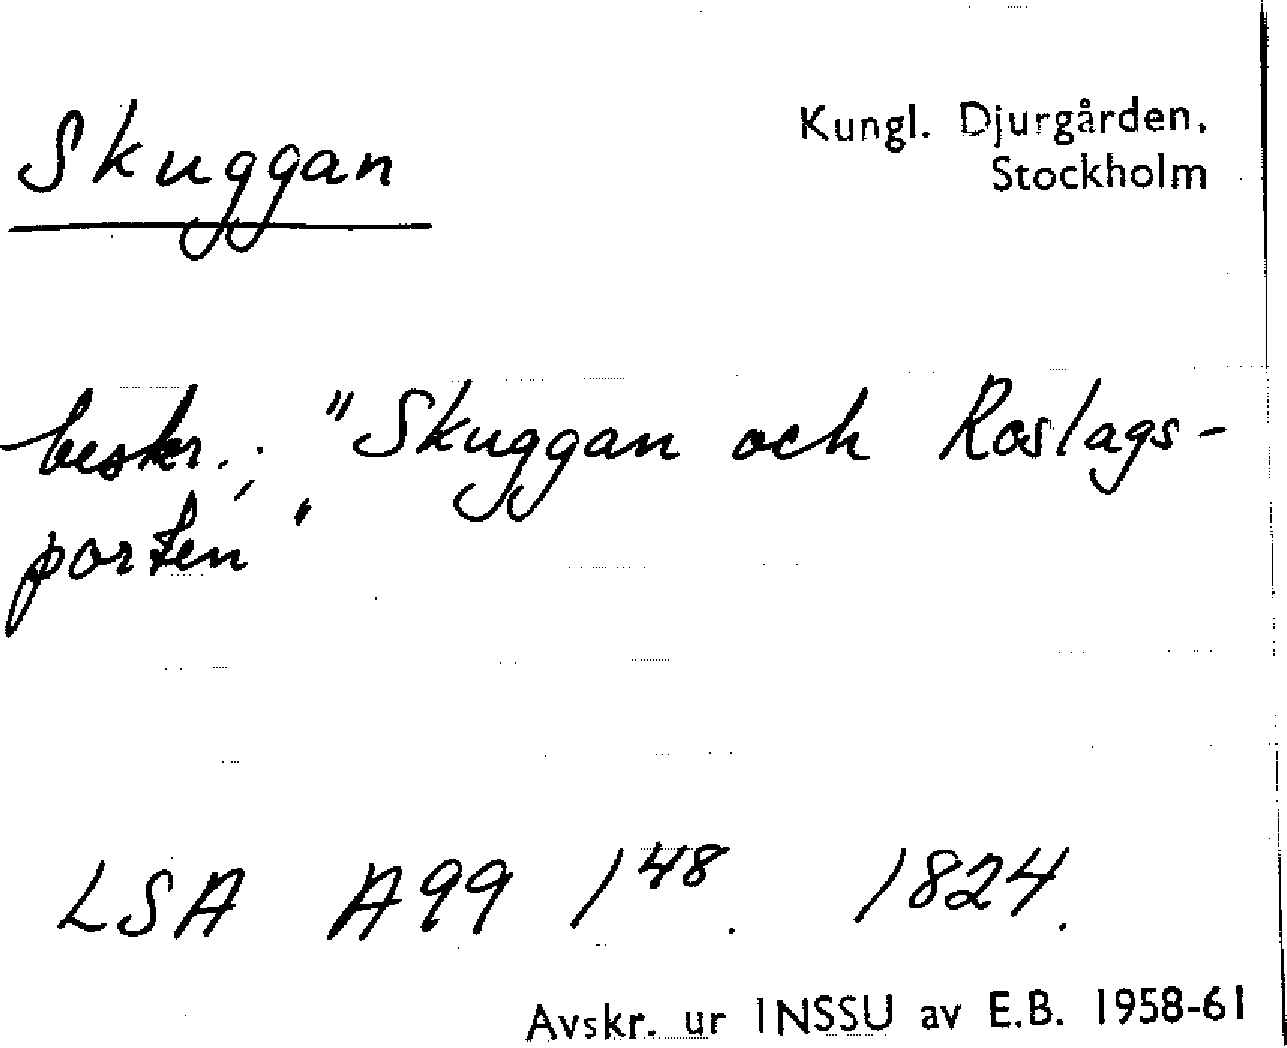 Skuggan
Kungl. Djurgården,
Stockholm
beskr.: "Skuggan och Roslags-
porten"
LSA A99 1⁴⁸. 1824.
Avskr. ur INSSU av E.B. 1958-61